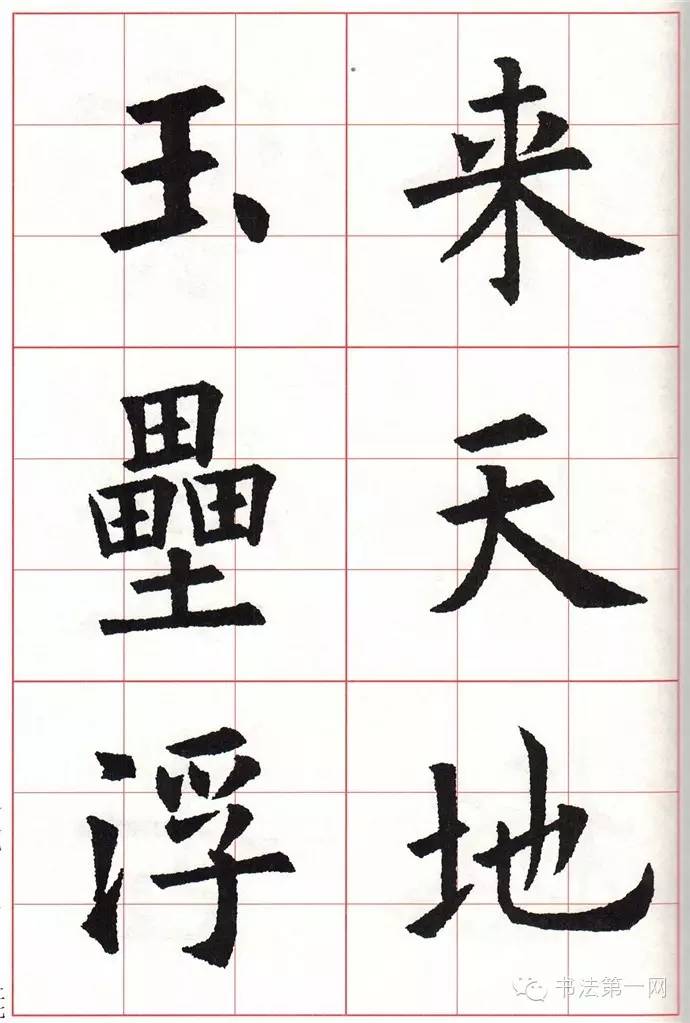 来天地
玉壘浮
书法第一网